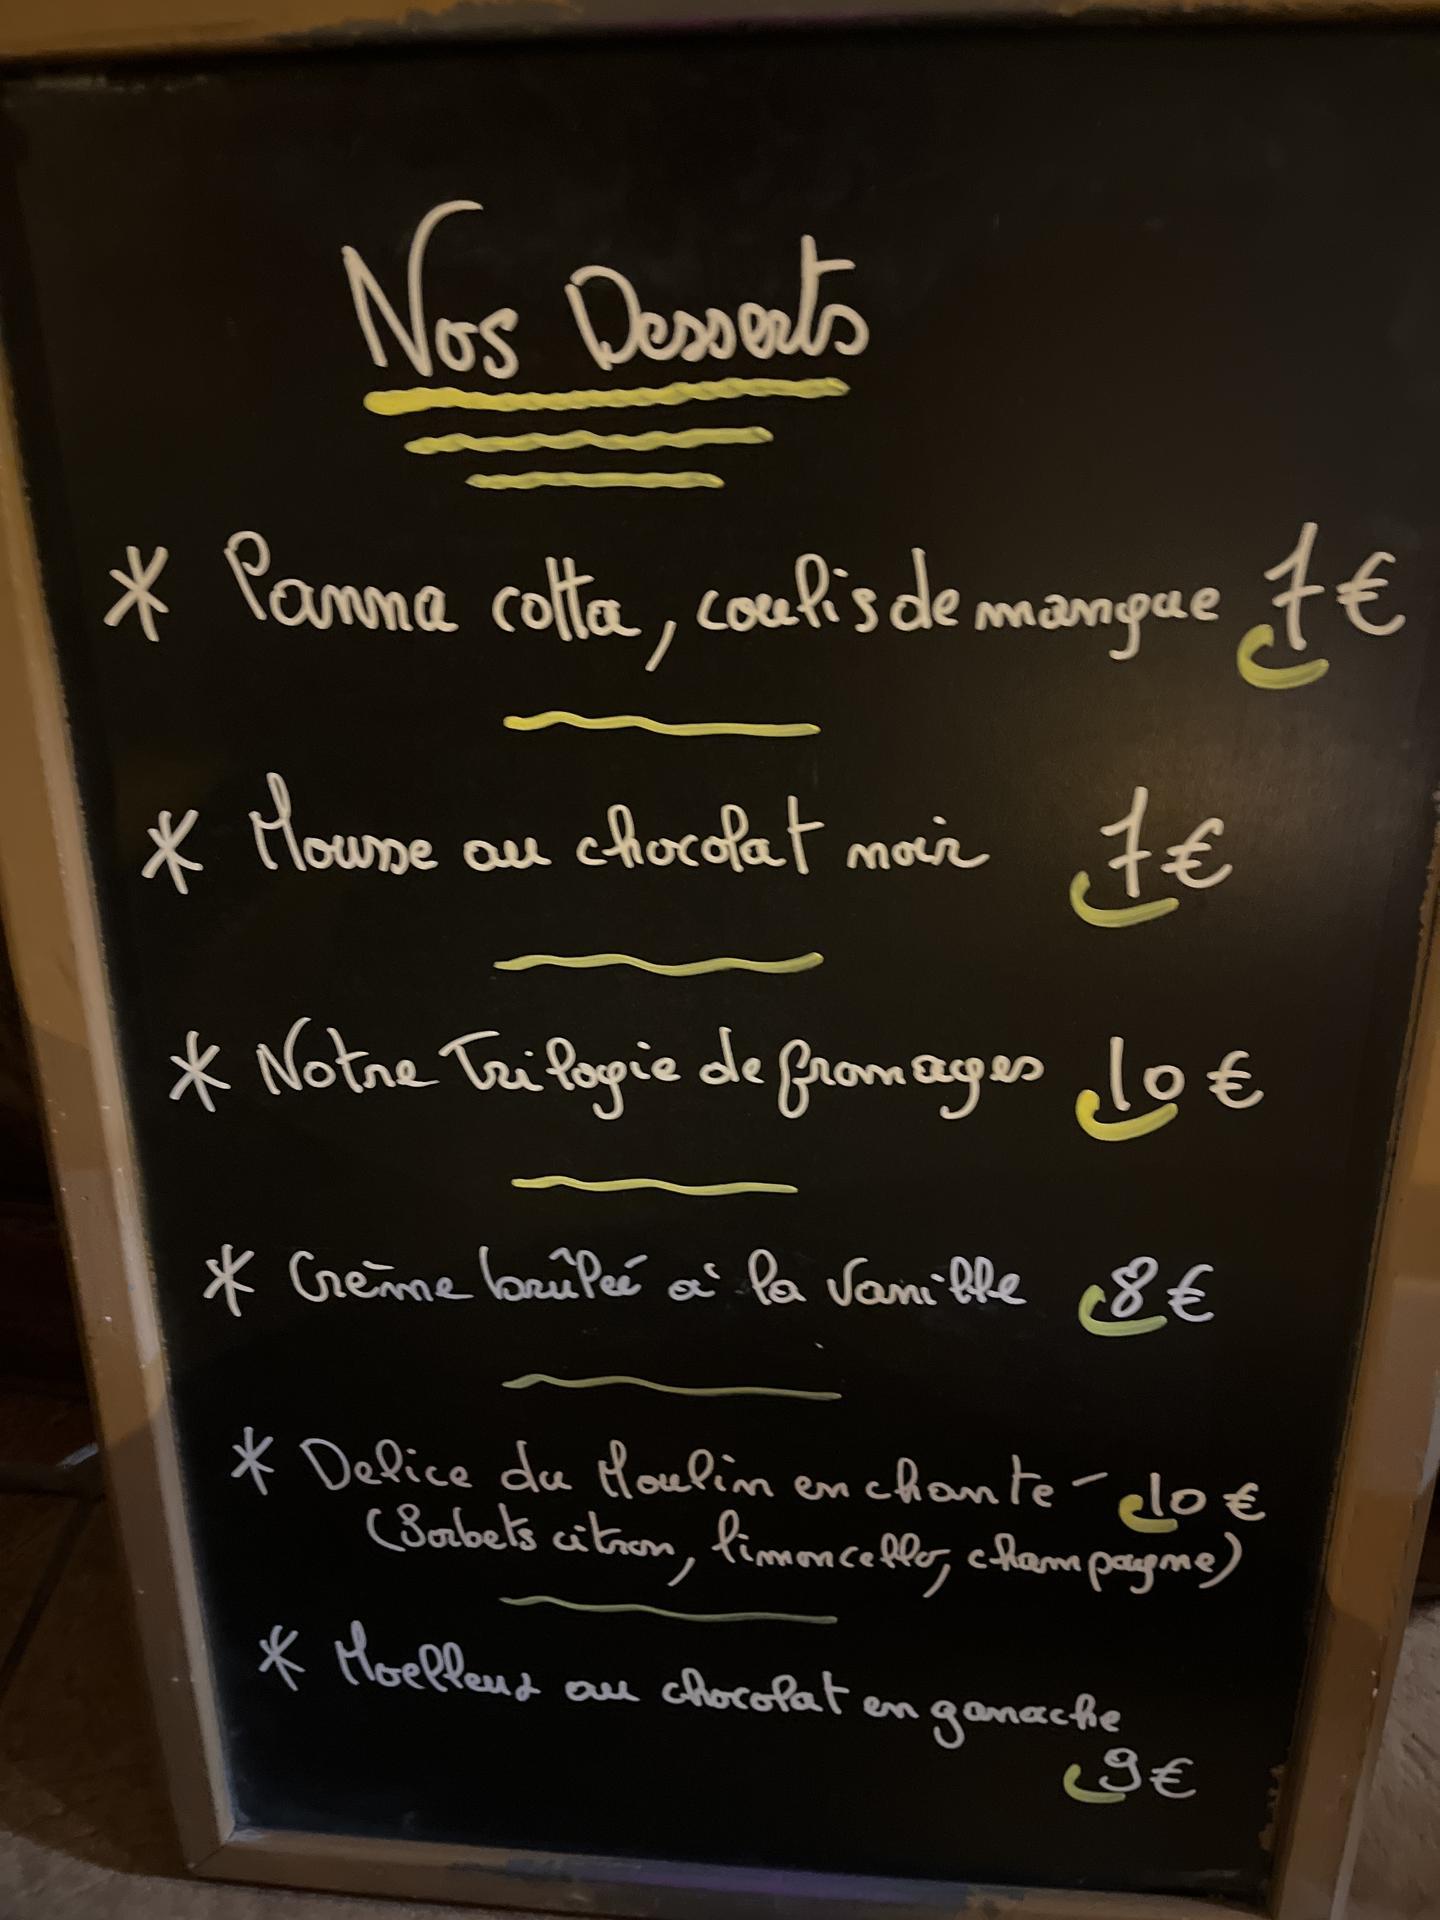 Nos Desserts
* Panna cotta, coulis de mangue 7€
* Mousse au chocolat noir 7€
* Notre Trilogie de fromages 10€
* Crème brûlée à la Vanille 8€
* Delice du Moulin enchanté 10€
(Sorbets citron, limoncello, champagne)
* Moelleux au chocolat en ganache
9€